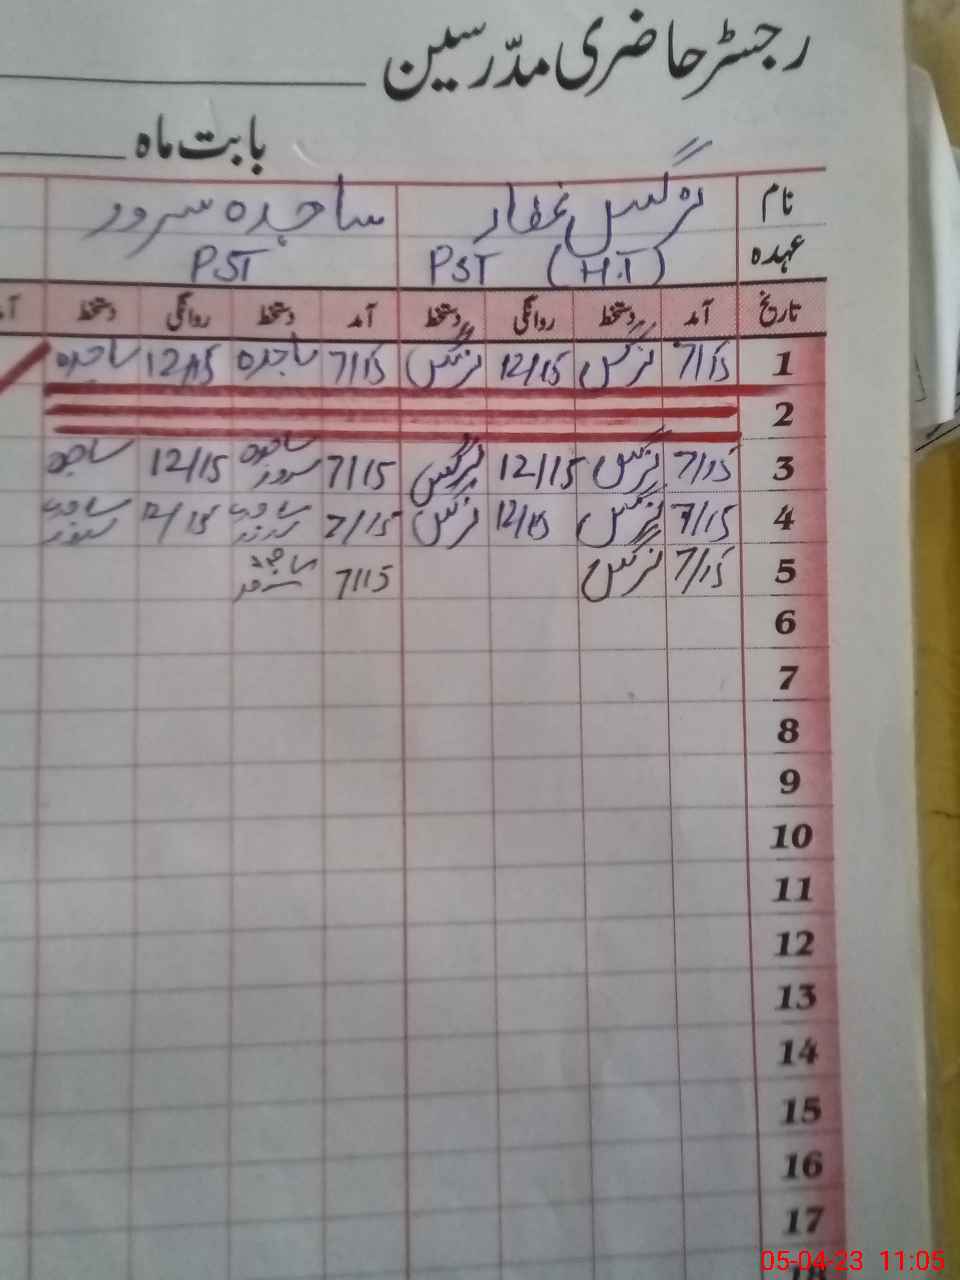 رجسٹر حاضری مدرسین
بابت ماہ
نام نرگس غفار ساجدہ سرور
عہدہ PST (H.T) PST
تاریخ آمد دستخط روانگی دستخط آمد دستخط روانگی دستخط
1 7/15 نرگس 12/15 نرگس 7/15 ساجدہ 12/15 ساجدہ
2
3 7/15 نرگس 12/15 نرگس 7/15 ساجدہ سرور 12/15 ساجدہ
4 7/15 نرگس 12/15 نرگس 7/15 ساجدہ سرور 12/15 ساجدہ سرور
5 7/15 نرگس 7/15 ساجدہ سرور
6
7
8
9
10
11
12
13
14
15
16
17
05-04-23 11:05